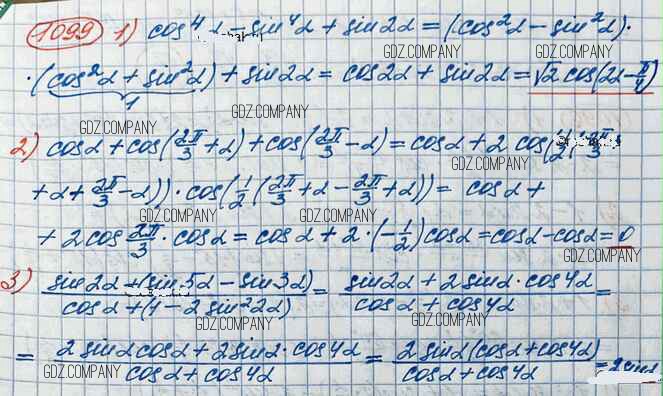 1099 1) cos⁴α − sin⁴α + sin2α = (cos²α − sin²α)·
GDZ.COMPANY GDZ.COMPANY
·(cos²α + sin²α) + sin2α = cos2α + sin2α = √2 cos(2α − π/4)
1
GDZ.COMPANY GDZ.COMPANY
2) cosα + cos(2π/3 + α) + cos(2π/3 − α) = cosα + 2 cos(1/2(2π/3
GDZ.COMPANY
+ α + 2π/3 − α))·cos(1/2(2π/3 + α − 2π/3 + α)) = cosα +
GDZ.COMPANY GDZ.COMPANY
+ 2cos 2π/3 · cosα = cosα + 2·(−1/2)cosα = cosα − cosα = 0
GDZ.COMPANY GDZ.COMPANY
3) sin2α + (sin5α − sin3α) / cosα + (1 − 2sin²2α) = sin2α + 2sinα·cos4α / cosα + cos4α =
GDZ.COMPANY GDZ.COMPANY
= 2sinαcosα + 2sinα·cos4α / cosα + cos4α = 2sinα(cosα + cos4α) / cosα + cos4α = 2sinα
GDZ.COMPANY GDZ.COMPANY